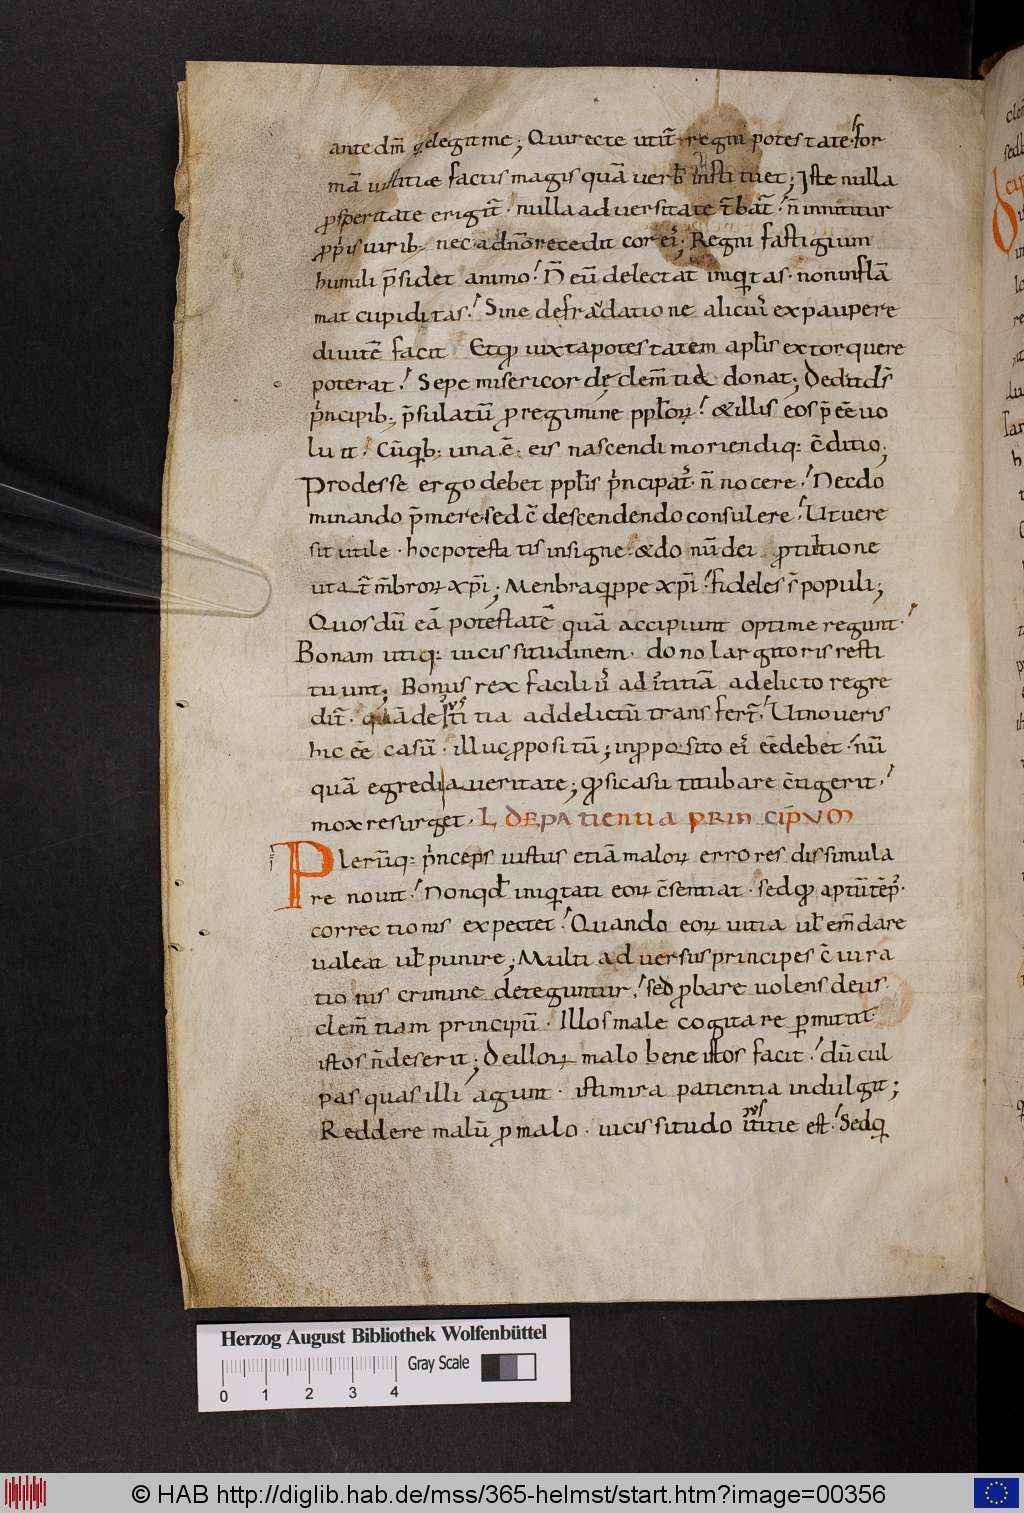 ante dm̄ ęlegit me; Qui recte utit̄ regni potestate· for
mā iustitiae factis magis quā uerb̄ instituet; Iste nulla
ꝓsperitate erigit̄· nulla aduersitate t̄bat̄· n̄ innititur
ꝓpriis uirib; nec a dn̄o recedit cor ei᾿; Regni fastigium
humili p̄sidet animo· N̄ eū delectat iniqitas· non inflā
mat cupiditas· Sine defraudatione alicui᾿ ex paupere
diuitē facit Et qđ iuxta potestatem apłis extorquere
poterat· Sepe misericordę clem̄ti& donat; Dedit ds̄
p᾿ncipib; p̄sulatū ꝓ regimine ppłoꝝ· & illis eos p̄eē uo
luit· Cū qb; una ē eis nascendi moriendiq; c̄ditio;
Prodesse ergo debet ppłis p᾿ncipat᾿· n̄ nocere· Nec do
minando p̄mere· sed c̄descendendo consulere· Ut uere
sit utile· hoc potestatis insigne· & dono dei ꝓ tuitione
uta t̄ m̄broꝝ xp̄i; Menbra qippe xp̄i· fideles s̄ populi;
Quos dū eā potestatē quā accipiunt optime regunt·
Bonam utiq; uicissitudinem· dono largitoris resti
tuunt; Bonus rex facili᾿ ad iustitiā a delicto regre
dit̄· quā de iustitia ad delictū transfert̄· Ut noueris
hic eē casū· illuc ꝓpositū; in ꝓposito ei᾿ eē debet· nū
quā egredi a ueritate; Qđ si casu titubare c̄tigerit·
mox resurget· L, DE PATIENTIA PRINCIPVM
Plerūq; p᾿nceps iustus etiā maloꝝ errores dissimula
re nouit· Non qđ iniqitati eoꝝ c̄sentiat· sed qđ aptū tēp᾿
correctionis expectet· Quando eoꝝ uitia uł em̄dare
ualeat uł punire; Multi aduersus principes c̄iura
tionis crimine deteguntur· sed ꝓbare uolens deus
clem̄tiam principū· Illos male cogitare ꝑmittit·
istos n̄ deserit; De illoꝝ malo bene istos facit· dū cul
pas quas illi agunt· isti mira patientia indulgit;
Reddere malū ꝓ malo· uicissitudo iustitie est· Sed q
Herzog August Bibliothek Wolfenbüttel
Gray Scale
0 1 2 3 4
© HAB http://diglib.hab.de/mss/365-helmst/start.htm?image=00356